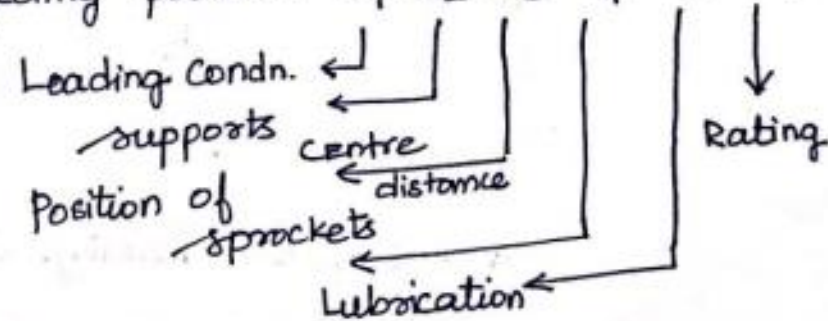 Loading Condn.
supports
Rating
centre
distance
Position of
sprockets
Lubrication